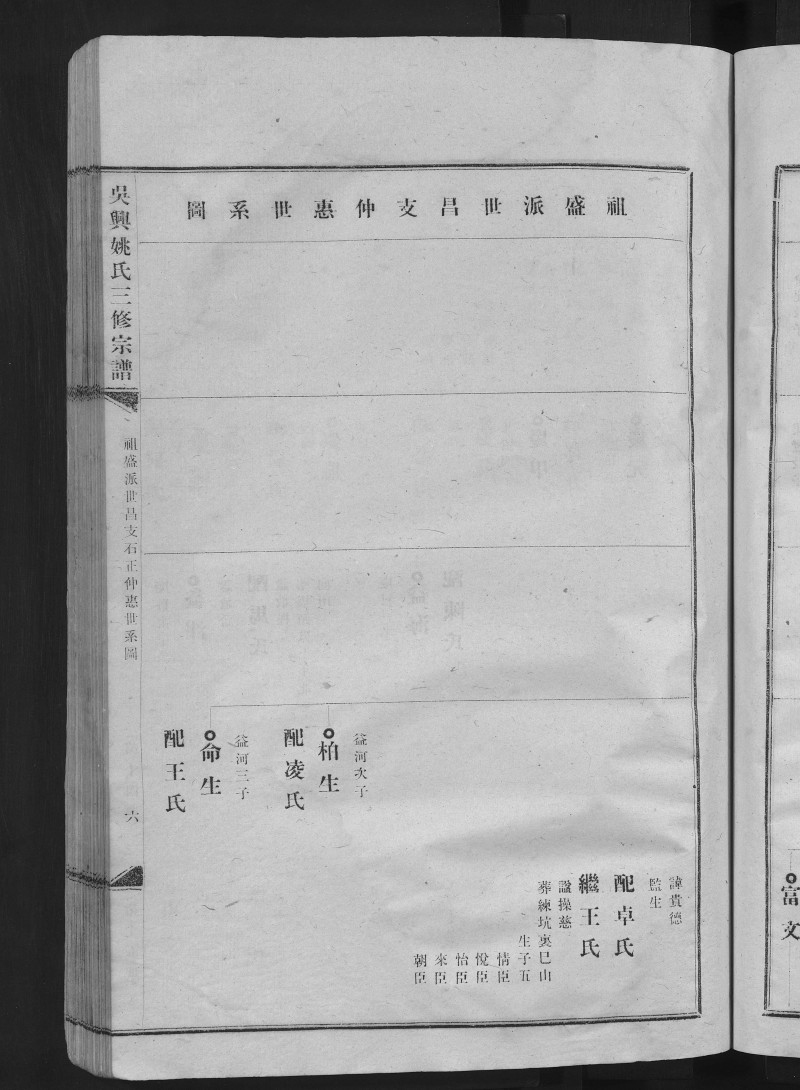 祖盛派世昌支仲惠世系圖
諱貴德
監生
配卓氏
繼王氏
諡操慈
葬練坑裏巳山
生子五
情臣
悅臣
怡臣
來臣
朝臣
益河次子
柏生
配凌氏
益河三子
命生
配王氏
吳興姚氏三修宗譜
祖盛派世昌支石正仲惠世系圖
六
富文